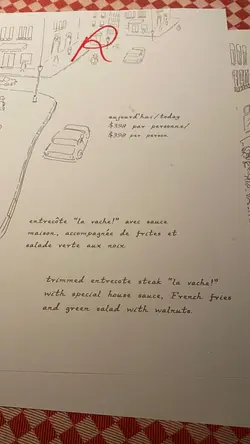 R
aujourd'hui/today
$390 par personne/
$390 per person
entrecôte "la vache!" avec sauce
maison, accompagnée de frites et
salade verte aux noix
trimmed entrecote steak "la vache!"
with special house sauce, French fries
and green salad with walnuts.